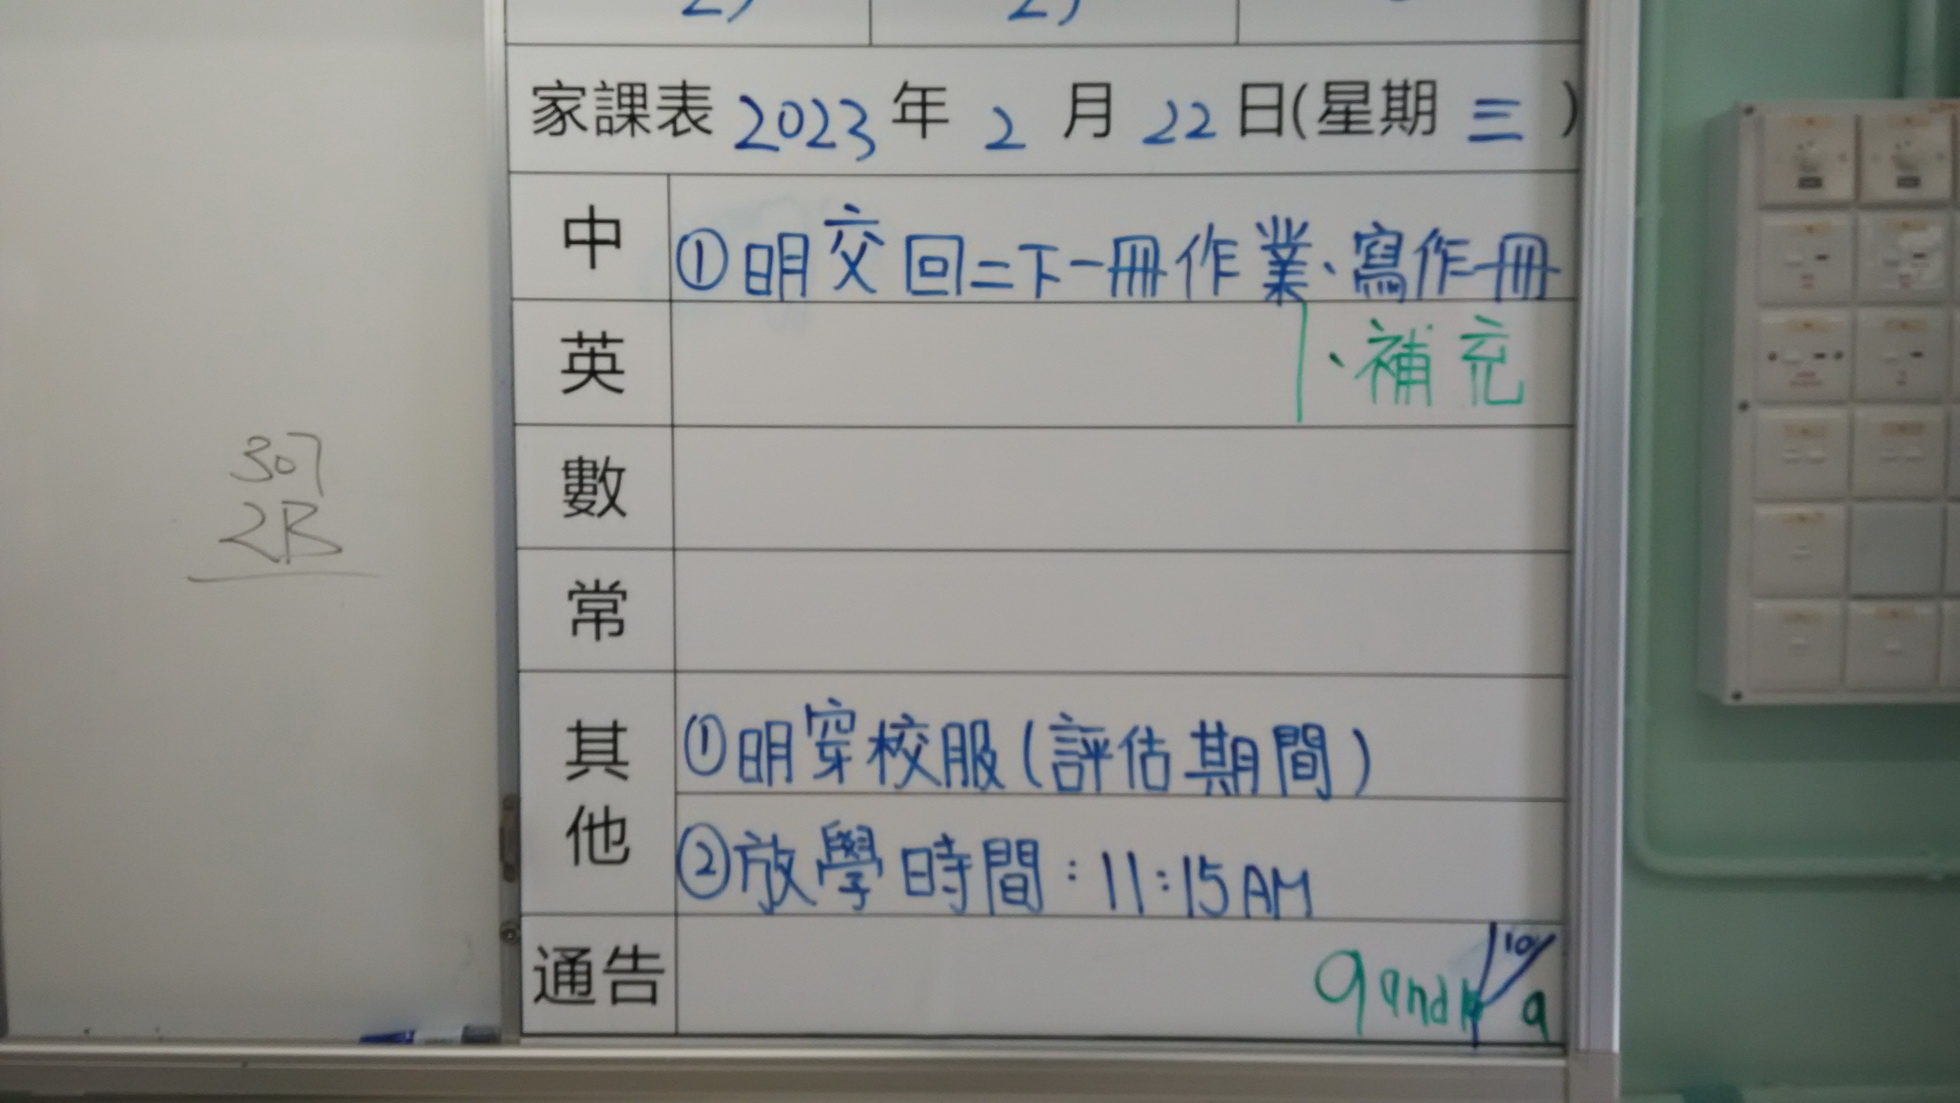 家課表 2023 年 2 月 22 日(星期 三 )
中 ①明交回二下一冊作業、寫作冊
英 、補充
數
常
其他 ①明穿校服(評估期間)
②放學時間:11:15AM
通告
10
9
307
2B